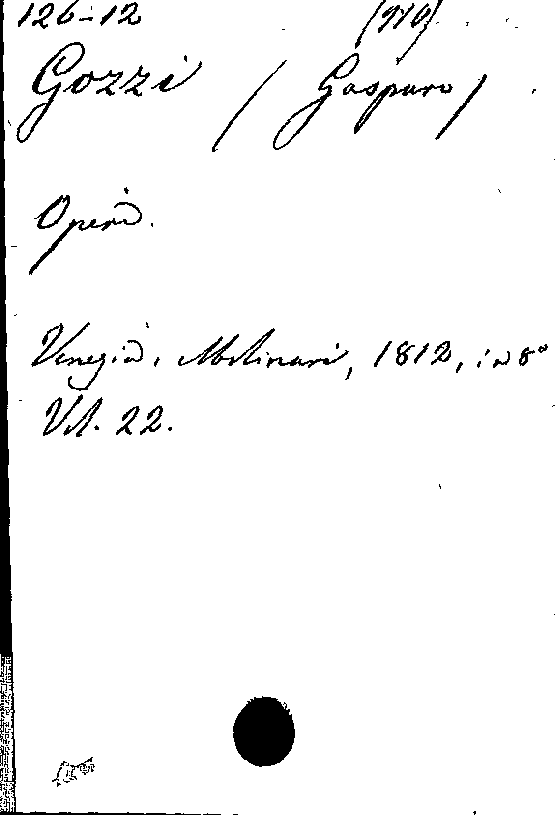 126-12
Gozzi (Gasparo)
Opere.
Venezia, Molinari, 1812, in 8°
Vol. 22.